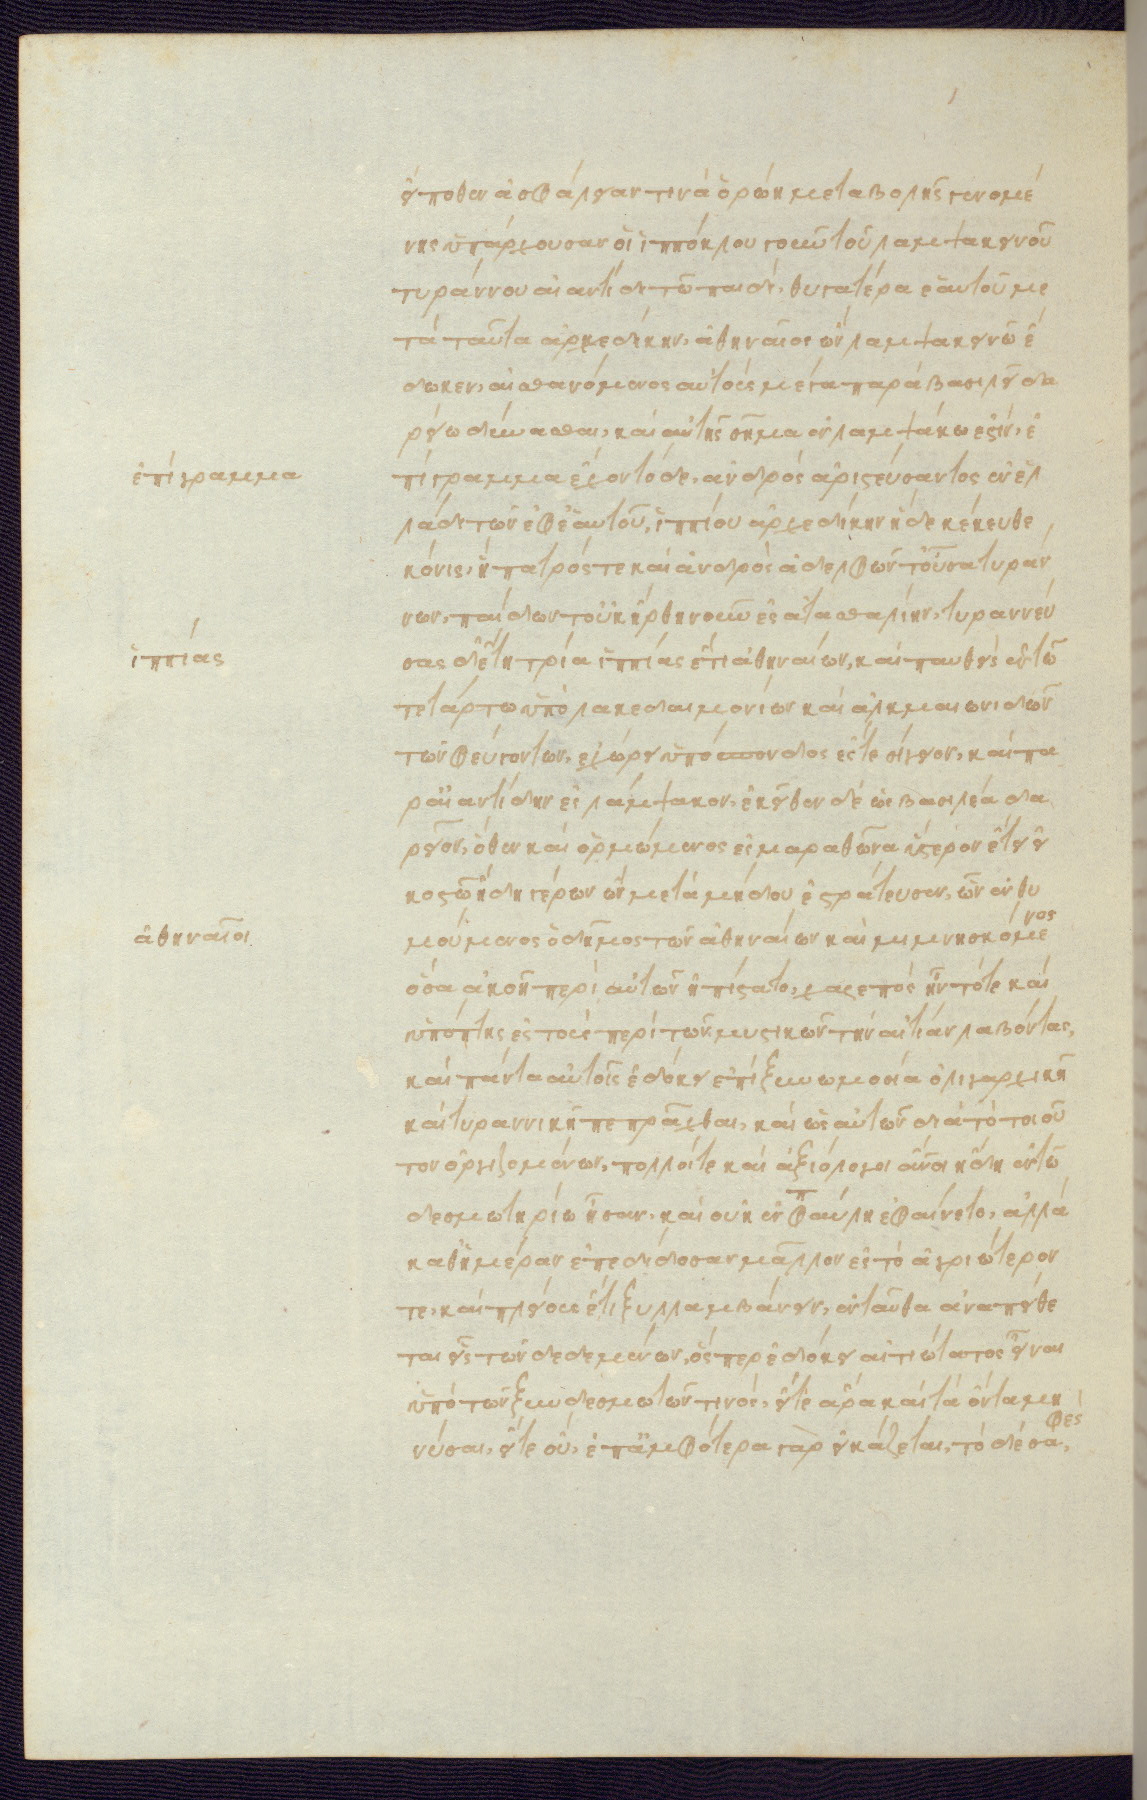 εἴ ποθεν ἀσφάλειάν τινὰ ὁρώη μεταβολῆς γενομέ
νης ὑπάρχουσαν οἱ ἱππόκλου γοῦν τοῦ λαμψακηνοῦ
τυράννου αἰαντίδη τῶ παιδὶ, θυγατέρα ἑαυτοῦ με
τὰ ταῦτα ἀρχεδίκην, ἀθηναῖος ὢν λαμψακηνῶ ἔ
δωκεν, αἰσθανόμενος αὐτοὺς μέγα παρὰ βασιλεῖ δα
ρείω δύνασθαι, καὶ αὐτῆς σῆμα ἐν λαμψάκω ἐστὶν, ἐ
ἐπίγραμμα
πίγραμμα ἔχον τόδε, ἀνδρὸς ἀριστεύσαντος ἐν ἑλ
λάδι τῶν ἐφ' ἑαυτοῦ, ἱππίου ἀρχεδίκην ἥδε κέκευθε
κόνις, ἣ πατρός τε καὶ ἀνδρὸς ἀδελφῶν τ' οὖσα τυράν
νων, παίδων τ' οὐκ ἤρθη νοῦν ἐς ἀτασθαλίην, τυραννεύ
ἱππίας
σας δὲ ἔτη τρία ἱππίας ἔτι ἀθηναίων, καὶ παυθεὶς ἐν τῶ
τετάρτω ὑπὸ λακεδαιμονίων καὶ ἀλκμαιωνιδῶν
τῶν φευγόντων, ἐχώρει ὑπόσπονδος ἔς τε σίγειον, καὶ πα
ρ' αἰαντίδην ἐς λάμψακον, ἐκεῖθεν δὲ ὡς βασιλέα δα
ρεῖον, ὅθεν καὶ ὁρμώμενος ἐς μαραθῶνα ὕστερον ἔτει εἰ
κοστῶ ἤδη γέρων ὢν μετὰ μήδων ἐστράτευσεν, ὧν ἐνθυ
ἀθηναῖοι
μούμενος ὁ δῆμος τῶν ἀθηναίων καὶ μιμνησκόμενος
ὅσα ἀκοῆ περὶ αὐτῶν ἠπίστατο, χαλεπὸς ἦν τότε καὶ
ὑπόπτης ἐς τοὺς περὶ τῶν μυστικῶν τὴν αἰτίαν λαβόντας,
καὶ πάντα αὐτοῖς ἐδόκει ἐπὶ ξυνωμοσία ὀλιγαρχικῆ
καὶ τυραννικῆ πεπρᾶχθαι, καὶ ὡς αὐτῶν διὰ τὸ τοιοῦ
τον ὀργιζομένων, πολλοί τε καὶ ἀξιόλογοι ἄνοι ἤδη ἐν τῶ
δεσμωτηρίω ἦσαν, καὶ οὐκ ἐν παύλη ἐφαίνετο, ἀλλὰ
καθ' ἡμέραν ἐπεδίδοσαν μᾶλλον ἐς τὸ ἀγριώτερον
τε, καὶ πλείους ἔτι ξυλλαμβάνειν, ἐνταῦθα ἀναπείθε
ται εἷς τῶν δεδεμένων, ὅσπερ ἐδόκει αἰτιώτατος εἶναι
ὑπὸ τῶν ξυνδεσμωτῶν τινὸς, εἴτε ἄρα καὶ τὰ ὄντα μη
νύσαι, εἴτε οὔ, ἐπ' ἀμφότερα γὰρ εἰκάζεται, τὸ δὲ σαφὲς